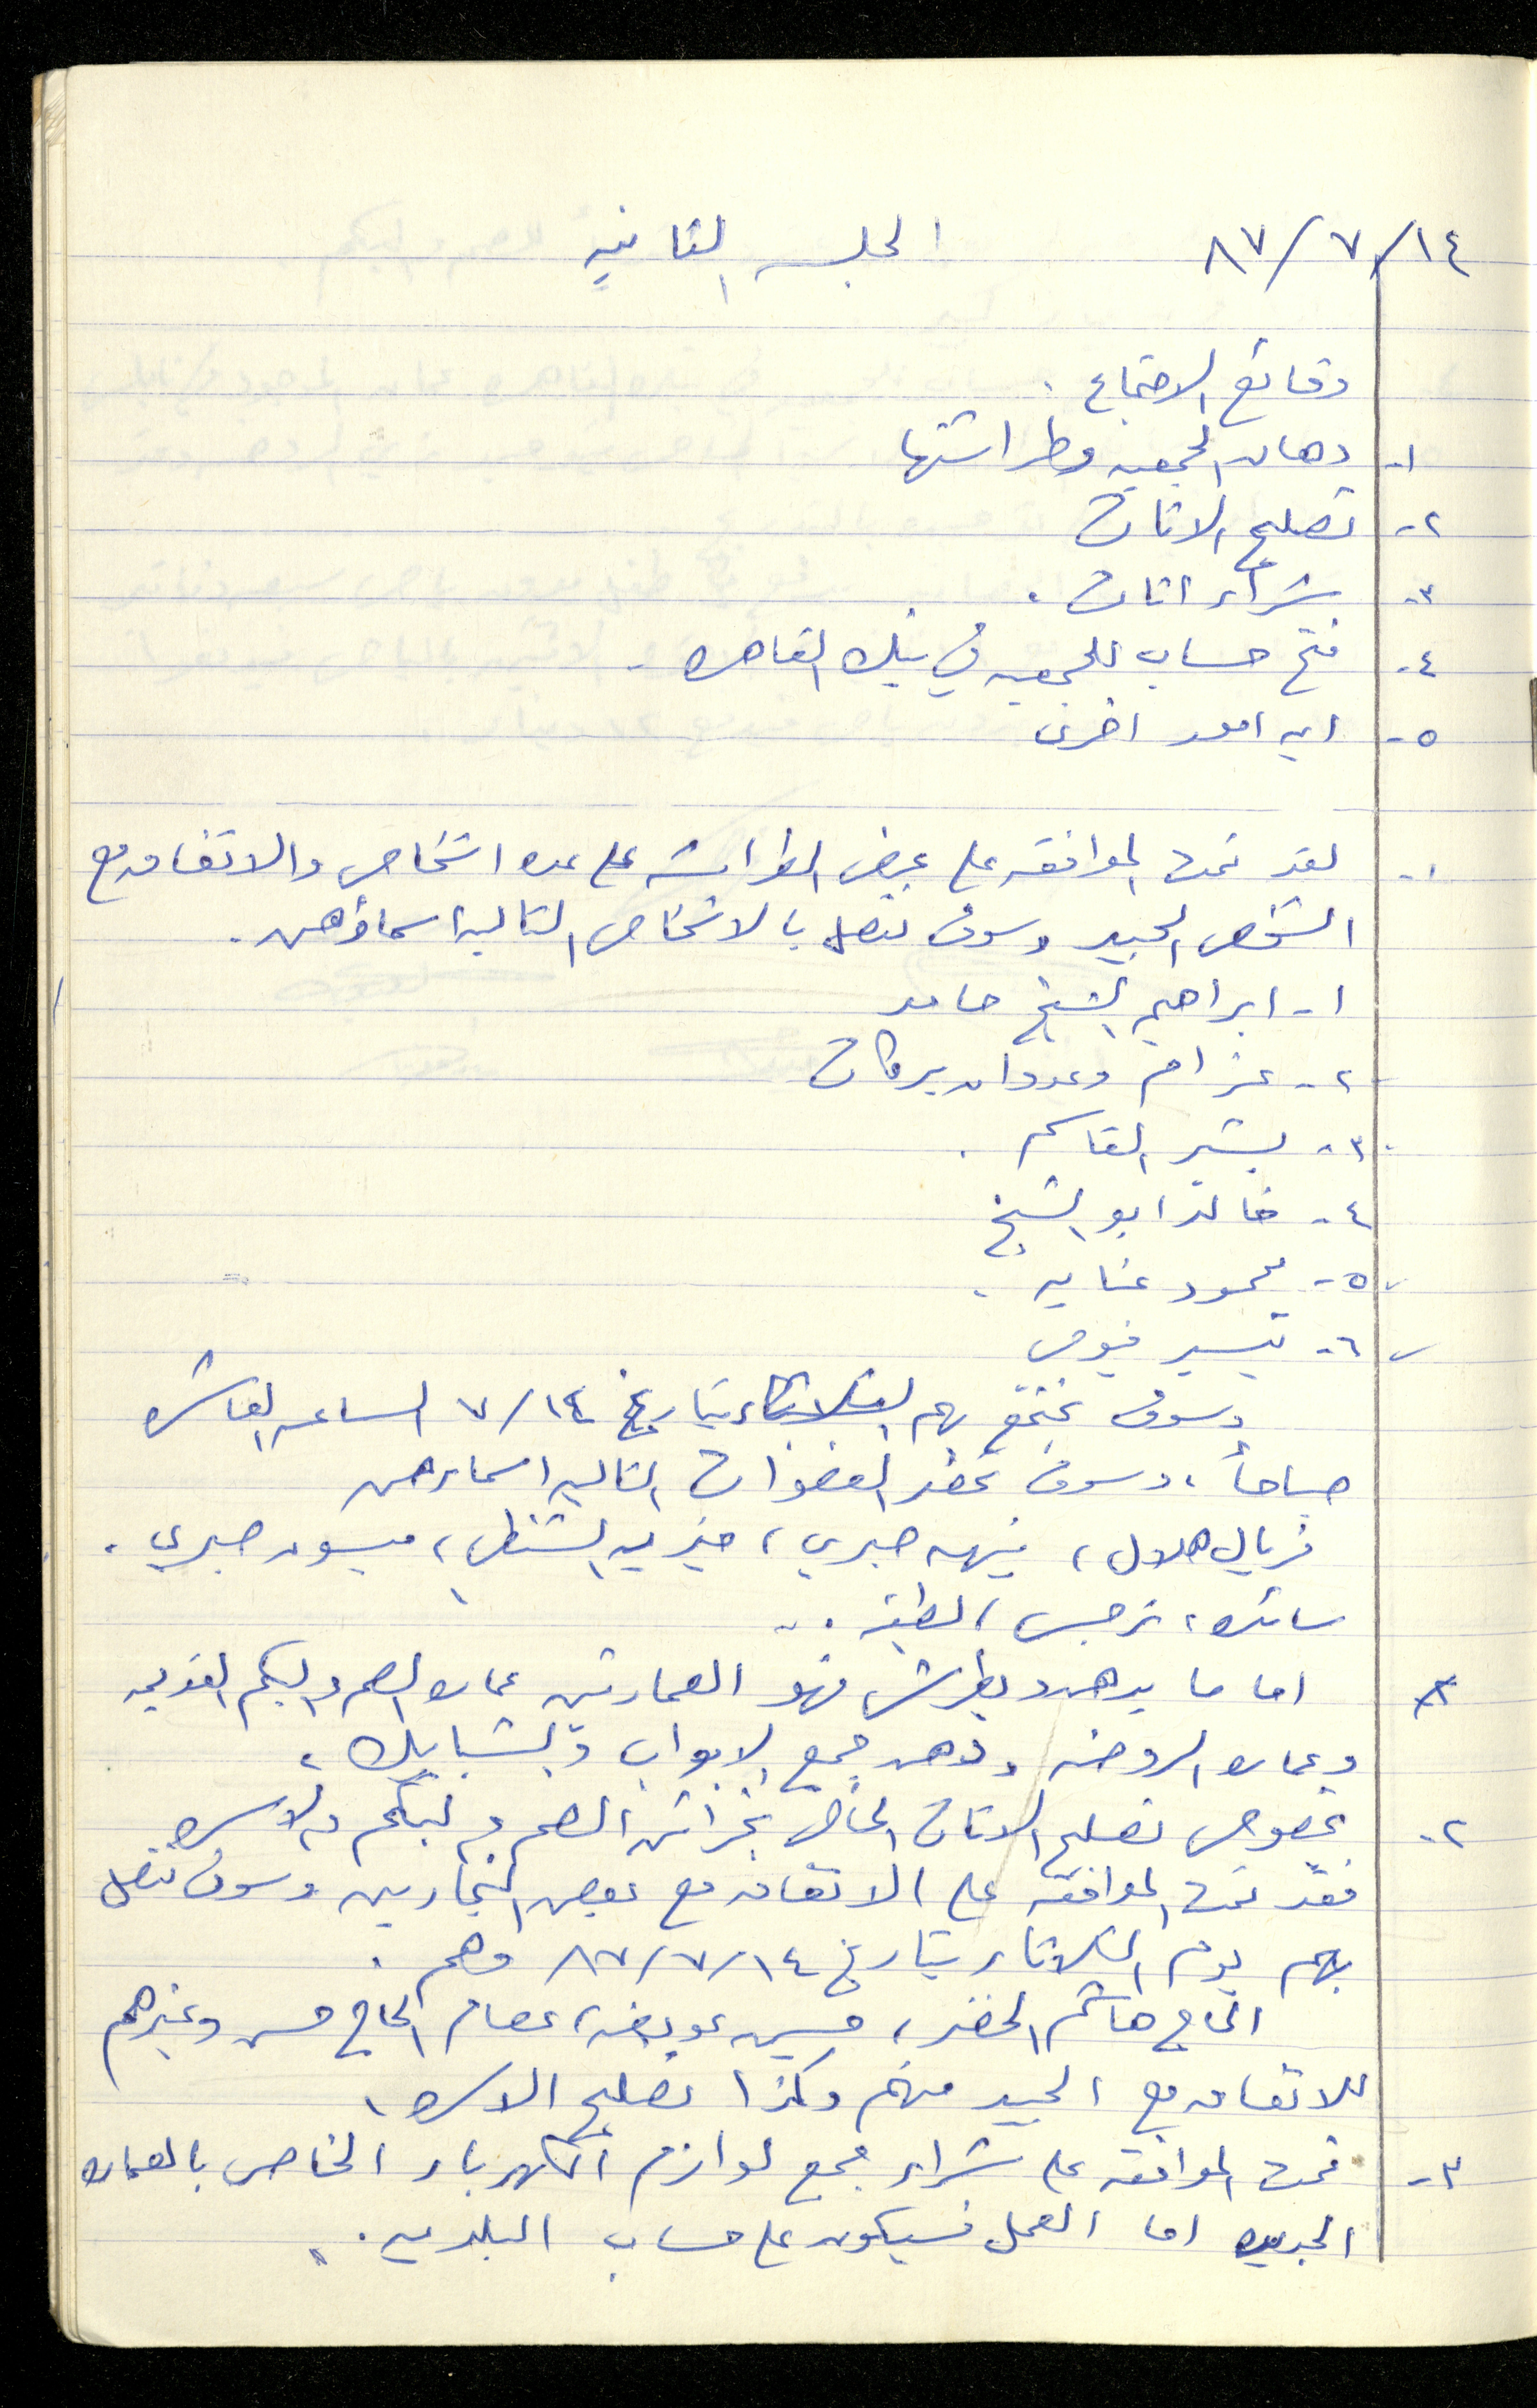 ٨٧/٧/١٤ الجلسه الثانيه
وقائع الاجتماع .
١- دهان الجمعيه وطراشتها
٢- تصليح الاثاث
٣- شراء اثاث .
٤- فتح حساب للجمعيه في بنك القاهره .
٥- ايه امور اخرى
١- لقد تمت الموافقه على عرض الطراشه على عده اشخاص والاتفاق مع
الشخص الجيد وسوف نتصل بالاشخاص التاليه اسماؤهن .
١- ابراهيم الشيخ حامد
٢- عزام وعدوان بركات
٣- بشير القاسم .
٤- خالد ابو الشيخ
٥- محمود عنايه .
٦- تيسير فيوض
وسوف نجتمع بهم الثلاثاء بتاريخ ٧/١٤ الساعه العاشره
صباحاً ، وسوف تحضر العضوات التاليه اسماءهن
فريال هلال ، نبيهه صبري ، خيريه الشنطي ، ميسون صبري .
سائده ، نرجس ، لطيفه . .
اما ما يدهن ويطرش فهو العمارتين عماره الصم والبكم القديمه
وعماره الروضه ودهن جميع الابواب والشبابيك ،
٢- بخصوص تصليح الاثاث الخاص بخزائن الصم والبكم والاسره
فقد تمت الموافقه على الاتفاق مع بعض النجارين وسوف نتصل
بهم يوم الثلاثاء بتاريخ ٨٧/٧/١٤ وهم .
الحاج هاشم الخضر ، حسين عويضه ، عصام الحاج حسن وغيرهم
للاتفاق مع الجيد منهم وكذا تصليح الاسره ،
٣- تمت الموافقه على شراء جميع لوازم الكهرباء الخاص بالعماره
الجديده اما العمل فسيكون على حساب البلديه .